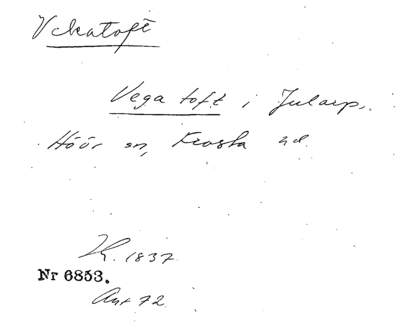 Vekatoft
Vega toft i Jularp,
Höör sn, Frosta hd.
K. 1837
Nr 6853.
Ant 72